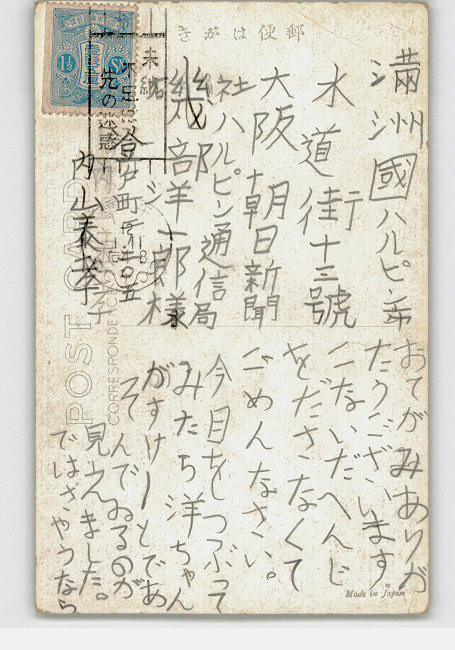 郵便はがき
満洲國ハルピン市
水道街十三號
大阪朝日新聞
社ハルピン通信局
幾部洋一郎様
内山
未納
不足
先の迷惑
1½ SN
おてがみありが
たうございます
こないだへんじ
をださなくて
ごめんなさい。
今目をつぶって
みたら洋ちゃん
がすけーとであ
そんでゐるのが
見えました。
ではさやうなら
POST CARD
CORRESPONDENCE
Made in Japan